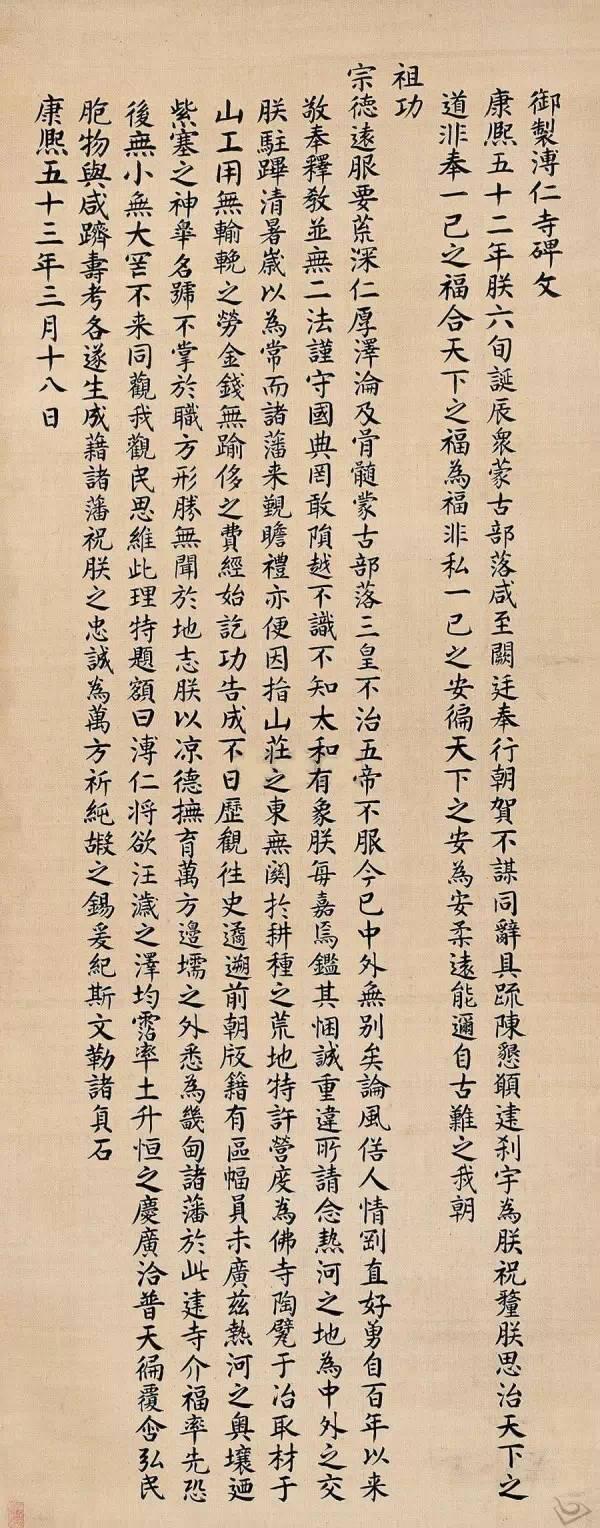 御製溥仁寺碑文
康熈五十二年朕六旬誕辰衆蒙古部落咸至闕廷奉行朝賀不謀同辭具疏陳懇願建刹宇為朕祝釐朕思治天下之
道非奉一已之福合天下之福為福非私一已之安徧天下之安為安柔遠能邇自古難之我朝
祖功
宗德遠服要荒深仁厚澤淪及骨髓蒙古部落三皇不治五帝不服今已中外無別矣論風俗人情剛直好勇自百年以来
敬奉釋教並無二法謹守國典罔敢隕越不識不知太和有象朕每嘉焉鑑其悃誠重違所請念熱河之地為中外之交
朕駐蹕清暑歲以為常而諸藩来覲瞻禮亦便因指山莊之東無関於耕種之荒地特許營度為佛寺陶甓于冶取材于
山工用無輸輓之勞金錢無踰侈之費經始訖功告成不日歷觀往史遹遡前朝版籍有區幅員未廣茲熱河之奥壤廼
紫塞之神皋名號不掌於職方形勝無聞於地志朕以凉德撫育萬方邊壖之外悉為畿甸諸藩於此建寺介福率先恐
後無小無大罔不来同觀我觀民思維此理特題額曰溥仁将欲汪濊之澤均霑率土升恒之慶廣洽普天徧覆含弘民
胞物與咸躋壽考各遂生成藉諸藩祝朕之忠誠為萬方祈純嘏之錫爰紀斯文勒諸貞石
康熈五十三年三月十八日